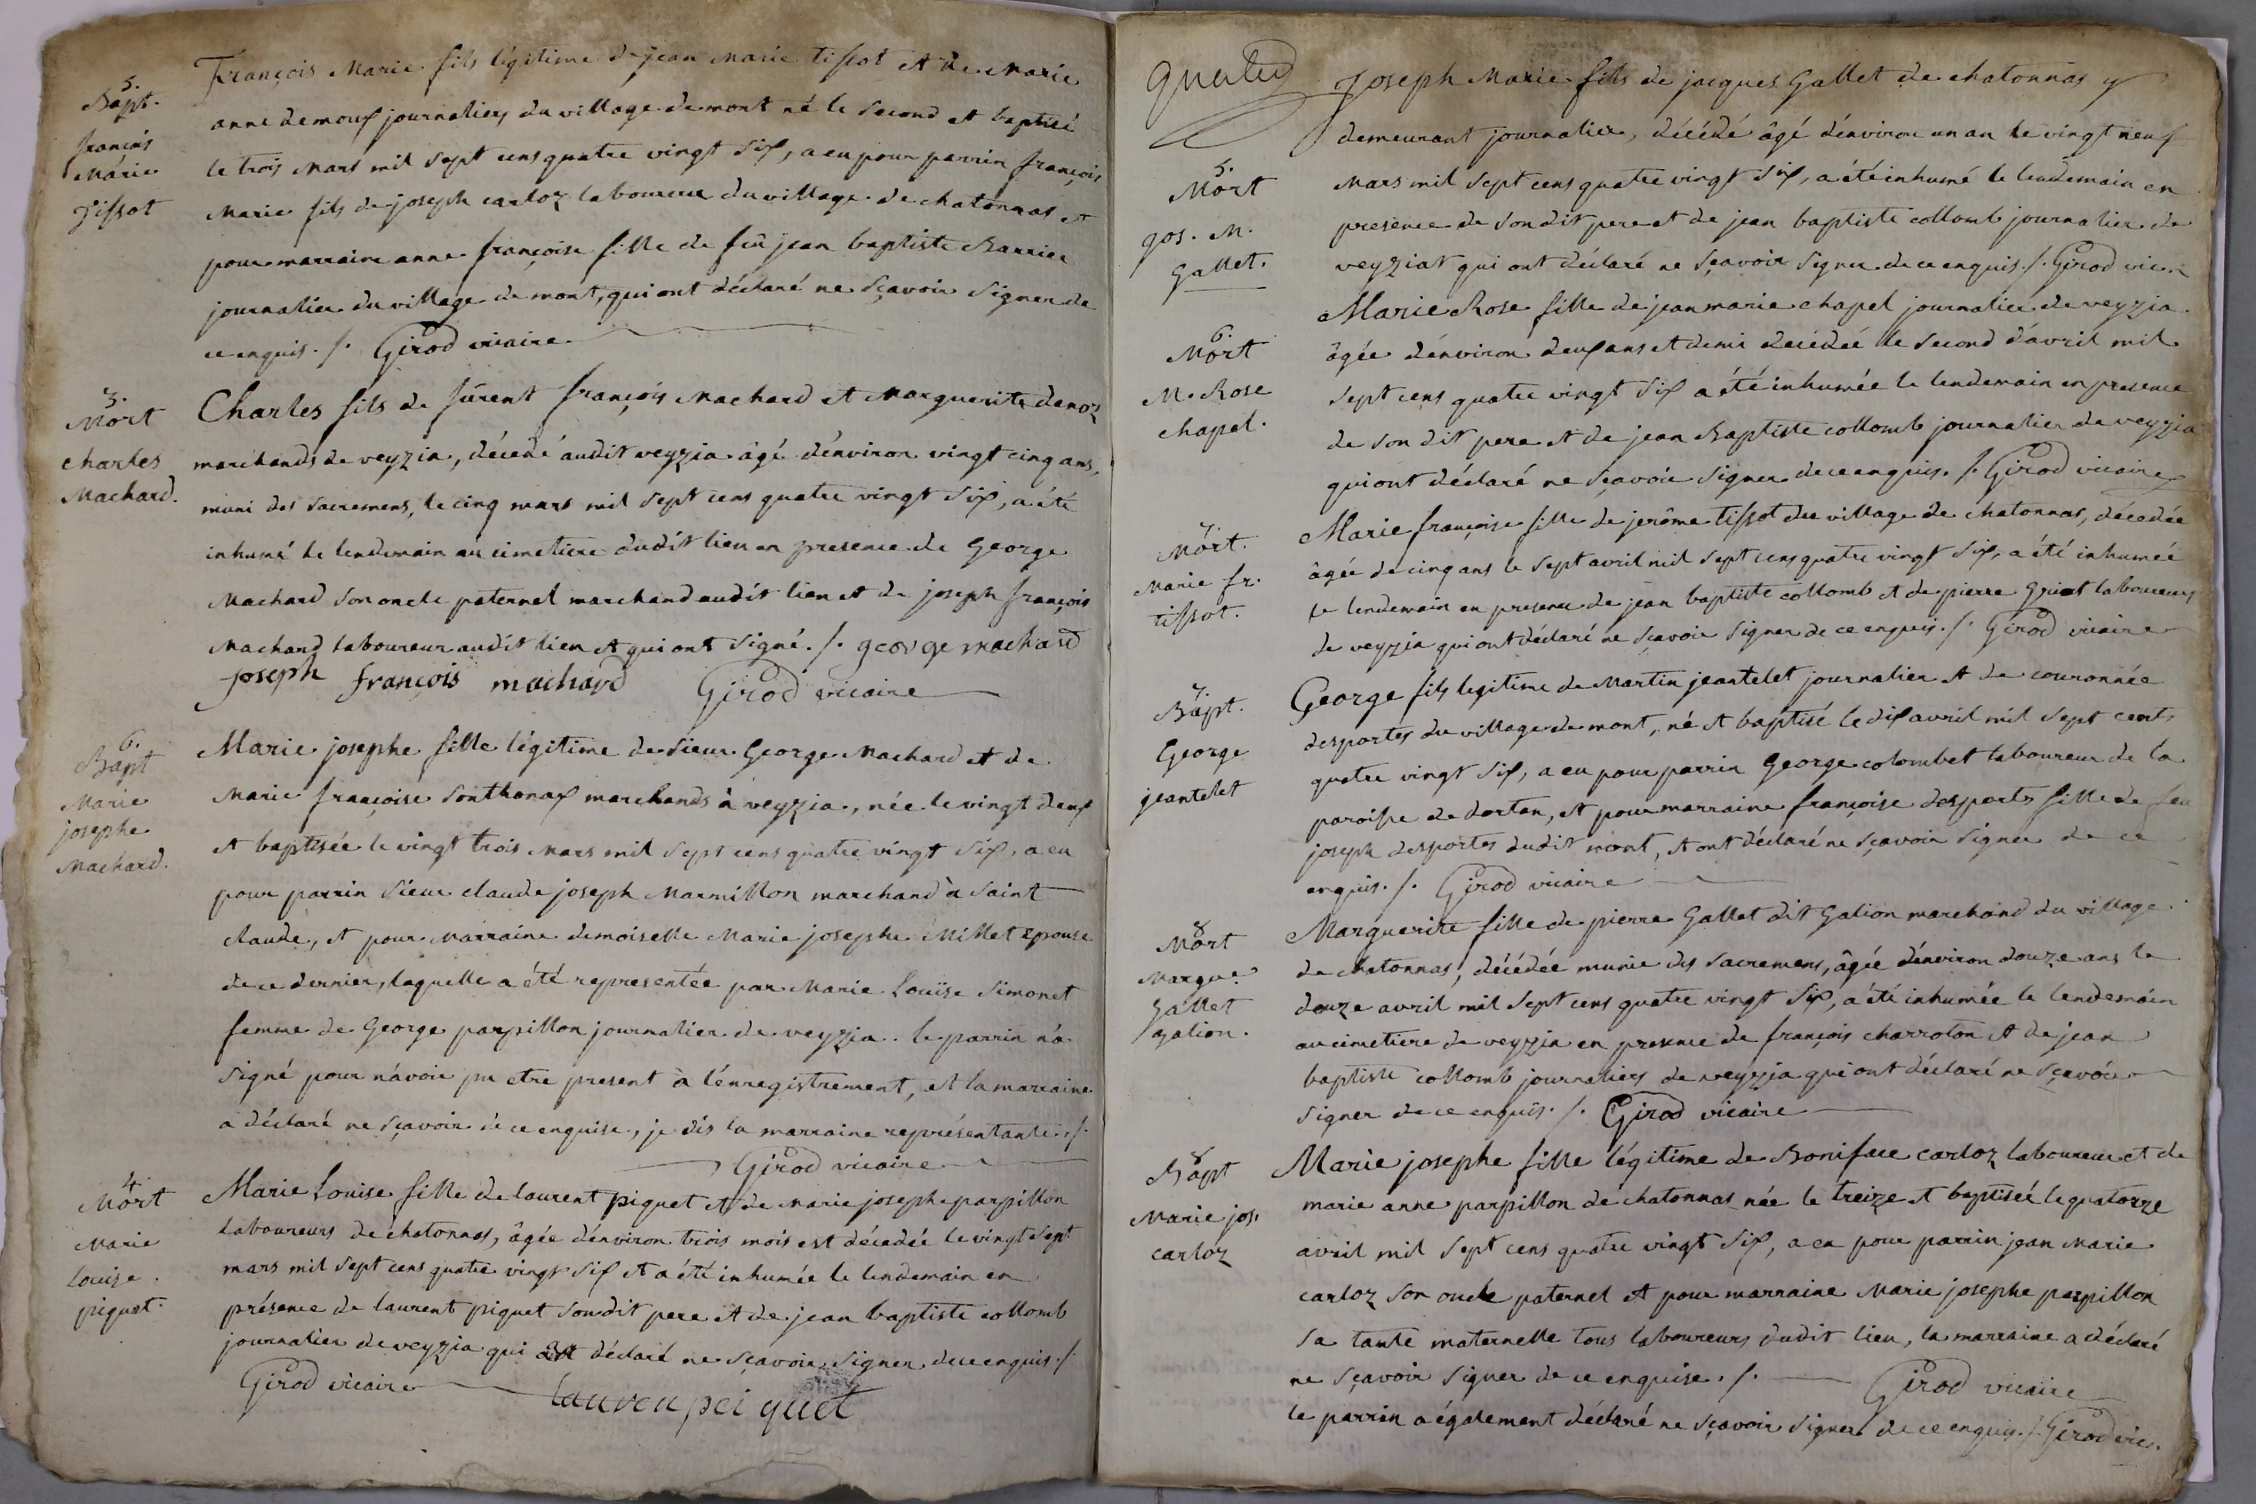 5.
Bapt.
françois
Marie
Tissot
François Marie fils légitime de jean Marie tissot et de Marie
anne demoux journaliers du village de mont né le second et baptisé
le trois Mars mil sept cens quatre vingt six, a eu pour parrin françois
Marie fils de joseph carloz laboureur du village de chatonnas et
pour marraine anne françoise fille de feû jean baptiste Barrier
journalier du village de mont, qui ont déclaré ne sçavoir signer de
ce enquis ./. Girod vicaire
3.
Mort
charles
Machard.
Charles fils de furent françois Machard et Marguerite danoz
marchands de veyzia, décédé audit veyzia âgé d'environ vingt cinq ans,
muni des sacremens, le cinq mars mil sept cens quatre vingt six, a été
inhumé le lendemain au cimetiere dudit lieu en presence de George
Machard son oncle paternel marchand audit lieu et de joseph françois
Machard laboureur audit lieu et qui ont signé ./. george machard
joseph françois machard Girod vicaire
6.
Bapt
Marie
josephe
Machard.
Marie josephe fille légitime de sieur George Machard et de
Marie françoise Sonthonax marchands à veyzia, née le vingt deux
et baptisée le vingt trois Mars mil sept cens quatre vingt six, a eu
pour parrin sieur claude joseph Marmillon marchand à Saint
claude, et pour Marraine demoiselle Marie josephe Millet epouse
de ce dernier, laquelle a été representée par Marie Louïse Simonet
femme de George parpillon journalier de veyzia. le parrin n'a
signé pour n'avoir pu etre present à l'enregistrement, et la marraine
a déclaré ne sçavoir de ce enquise, je dis la marraine représentante ./.
Girod vicaire
4.
Mort
Marie
Louise
piquet.
Marie Louise fille de laurent piquet et de Marie josephe parpillon
laboureurs de chatonnas, âgée d'environ trois mois est décedée le vingt sept
mars mil sept cens quatre vingt six et a été inhumée le lendemain en
présence de laurent piquet son dit pere et de jean baptiste collomb
journalier de veyzia qui ont déclaré ne sçavoir signer de ce enquis ./.
Girod vicaire lauren pei quet
5.
Mort
jos. M.
Gallet.
Joseph Marie fils de jacques Gallet de chatonnas y
demeurant journalier, décédé âgé d'environ un an le vingt neuf
Mars mil sept cens quatre vingt six, a été inhumé le lendemain en
presence de son dit pere et de jean baptiste collomb journalier de
veyziat qui ont déclaré ne sçavoir signer de ce enquis ./. Girod vic.
6.
Mort
M. Rose
chapel.
Marie Rose fille de jean marie chapel journalier de veyzia
âgée d'environ deux ans et demi decédée le second d'avril mil
sept cens quatre vingt six a été inhumée le lendemain en presence
de son dit pere et de jean Baptiste collomb journalier de veyzia
qui ont déclaré ne sçavoir signer de ce enquis ./. Girod vicaire
7.
Mort.
Marie fr.
tissot.
Marie françoise fille de jerôme tissot du village de chatonnas, décedée
âgée de cinq ans le sept avril mil sept cens quatre vingt six, a été inhumée
le lendemain en presence de jean baptiste collomb et de pierre Griot laboureurs
de veyzia qui ont déclaré ne sçavoir signer de ce enquis ./. Girod vicaire
7.
Bapt.
George
jeantelet
George fils legitime de Martin jeantelet journalier et de couronnée
desportes du village de mont, né et baptisé le dix avril mil sept cents
quatre vingt six, a eu pour parrin George colombet laboureur de la
paroisse de dortan, et pour marraine françoise desportes fille de feu
joseph desportes dudit mont, et ont déclaré ne sçavoir signer de ce
enquis ./. Girod vicaire
8
Mort
Margue.
Gallet
galion.
Marguerite fille de pierre Gallet dit Galion marchand du village
de chatonnas, décédée munie des sacremens, âgée d'environ douze ans le
douze avril mil sept cens quatre vingt six, a été inhumée le lendemain
au cimetiere de veyzia en presence de françois charroton et de jean
baptiste collomb journaliers de veyzia qui ont déclaré ne sçavoir
signer de ce enquis ./. Girod vicaire
8
Bapt
Marie jos.
carloz
Marie josephe fille légitime de Boniface carloz laboureur et de
marie anne parpillon de chatonnas née le treize et baptisée le quatorze
avril mil sept cens quatre vingt six, a eu pour parrin jean Marie
carloz son oncle paternel et pour marraine Marie josephe parpillon
sa tante maternelle tous laboureurs dudit lieu, la marraine a déclaré
ne sçavoir signer de ce enquise ./. Girod vicaire
le parrin a également déclaré ne sçavoir signer de ce enquis ./. Girod vic.